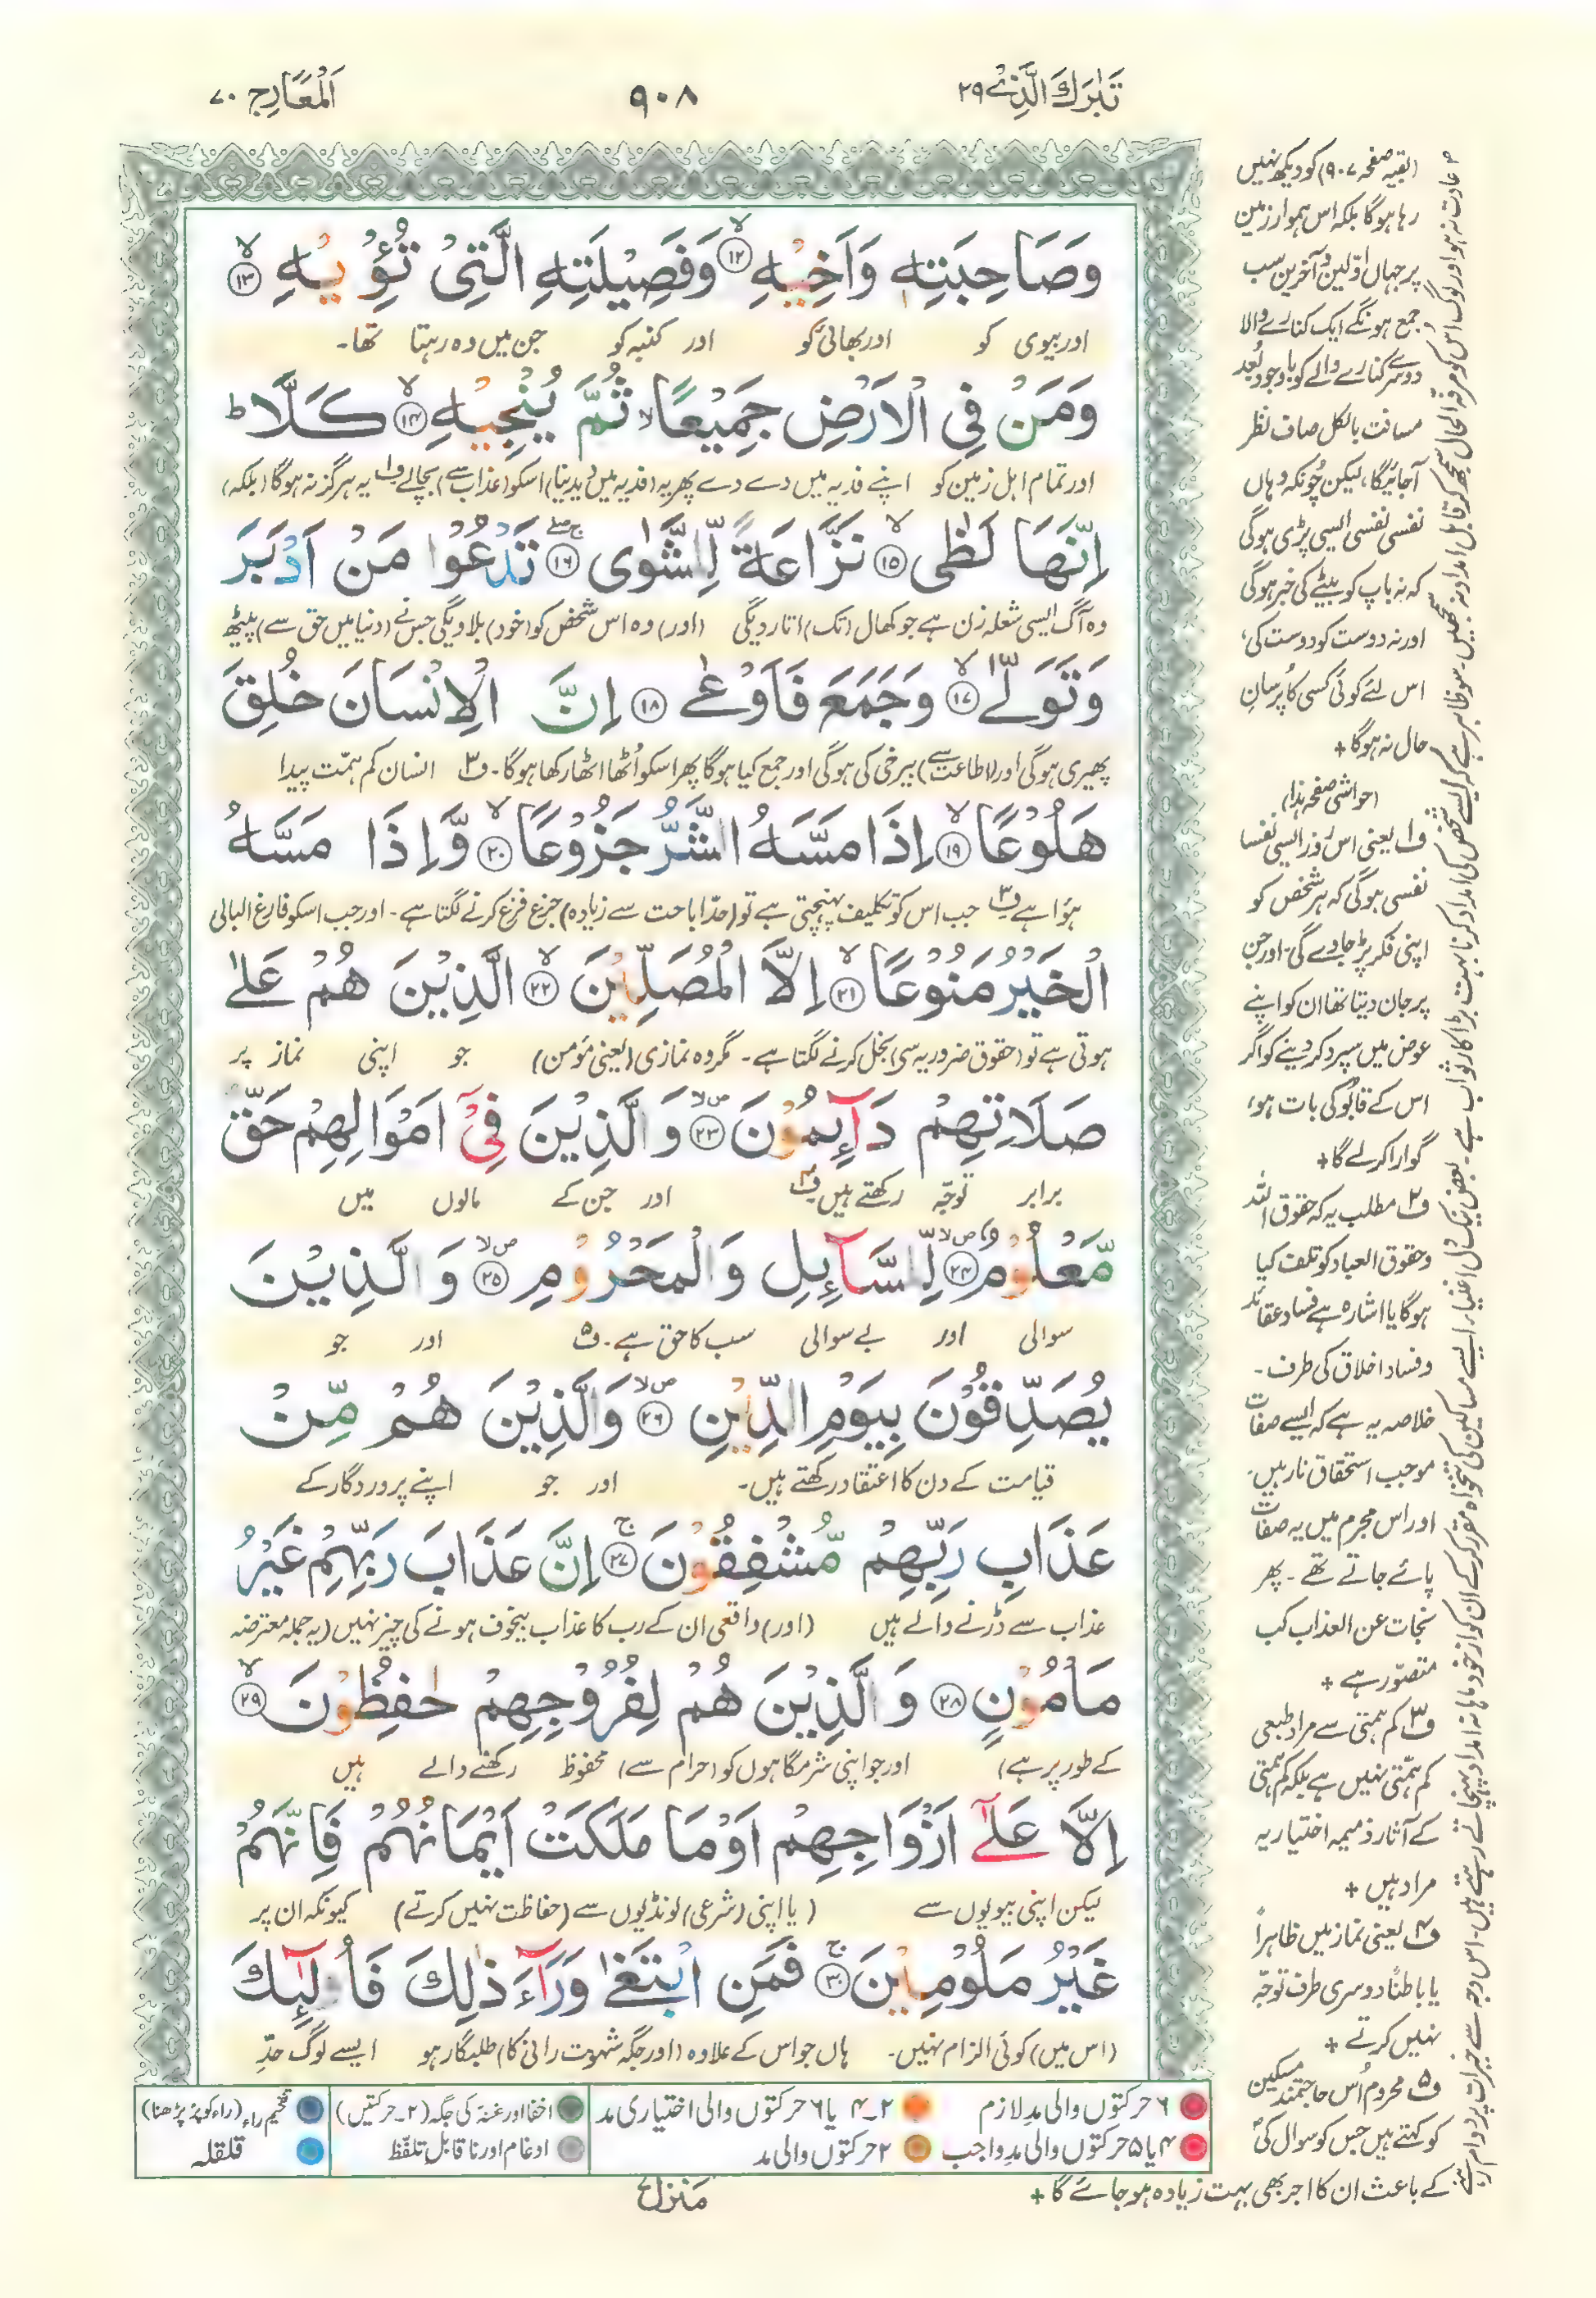 تَبٰرَكَ الَّذِىْ ۲۹
۹۰۸
اَلْمَعَارِج ۷۰
وَصَاحِبَتِهٖ وَاَخِيْهِ ۙ‏﴿۱۲﴾ وَفَصِيْلَتِهِ الَّتِىْ تُـــْٔوِيْهِ ۙ‏﴿۱۳﴾
اور بیوی کو اور بھائی کو اور کنبہ کو جن میں وہ رہتا تھا۔
وَمَنْ فِى الْاَرْضِ جَمِيْعًا ۙ ثُمَّ يُنْجِيْهِ ۙ‏﴿۱۴﴾ كَلَّا ؕ
اور تمام اہل زمین کو اپنے فدیہ میں دے دے پھر یہ (فدیہ میں دیدینا) اسکو (عذاب سے) بچالے ف۱ یہ ہرگز نہ ہوگا (بلکہ)
اِنَّهَا لَظٰى ۙ‏﴿۱۵﴾ نَزَّاعَةً لِّلشَّوٰى ۚۖ‏﴿۱۶﴾ تَدْعُوْا مَنْ اَدْبَرَ
وہ آگ ایسی شعلہ زن ہے جو کھال (تک) اتار دیگی (اور) وہ اس شخص کو (خود) بلاویگی جس نے (دنیا میں حق سے) پیٹھ
وَتَوَلّٰى ۙ‏﴿۱۷﴾ وَجَمَعَ فَاَوْعٰى ‏﴿۱۸﴾ اِنَّ الْاِنْسَانَ خُلِقَ
پھیری ہوگی اور (اطاعت سے) بیرخی کی ہوگی اور جمع کیا ہوگا پھر اسکو اُٹھا اٹھا رکھا ہوگا۔ ف۲ انسان کم ہمّت پیدا
هَلُوْعًا ۙ‏﴿۱۹﴾ اِذَا مَسَّهُ الشَّرُّ جَزُوْعًا ۙ‏﴿۲۰﴾ وَّاِذَا مَسَّهُ
ہؤا ہے ف۳ جب اس کو تکلیف پہنچتی ہے تو (حدّ اباحت سے زیادہ) جزع فزع کرنے لگتا ہے۔ اور جب اسکو فارغ البالی
الْخَيْرُ مَنُوْعًا ۙ‏﴿۲۱﴾ اِلَّا الْمُصَلِّيْنَ ۙ‏﴿۲۲﴾ الَّذِيْنَ هُمْ عَلٰى
ہوتی ہے تو (حقوق ضروریہ سے) بخل کرنے لگتا ہے۔ مگر وہ نمازی (یعنی مؤمن) جو اپنی نماز پر
صَلَاتِهِمْ دَآٮِٕمُوْنَ ۙ‏﴿۲۳﴾ وَالَّذِيْنَ فِىْۤ اَمْوَالِهِمْ حَقٌّ
برابر توجّہ رکھتے ہیں ف۴ اور جن کے مالوں میں
مَّعْلُوْمٌ ۙ‏﴿۲۴﴾ لِّلسَّآٮِٕلِ وَالْمَحْرُوْمِ ۙ‏﴿۲۵﴾ وَالَّذِيْنَ
سوالی اور بے سوالی سب کا حق ہے۔ ف۵ اور جو
يُصَدِّقُوْنَ بِيَوْمِ الدِّيْنِ ۙ‏﴿۲۶﴾ وَالَّذِيْنَ هُمْ مِّنْ
قیامت کے دن کا اعتقاد رکھتے ہیں۔ اور جو اپنے پروردگار کے
عَذَابِ رَبِّهِمْ مُّشْفِقُوْنَ ۚ‏﴿۲۷﴾ اِنَّ عَذَابَ رَبِّهِمْ غَيْرُ
عذاب سے ڈرنے والے ہیں (اور) واقعی ان کے رب کا عذاب بیخوف ہونے کی چیز نہیں (یہ جملہ معترضہ
مَاْمُوْنٍ ‏﴿۲۸﴾ وَالَّذِيْنَ هُمْ لِفُرُوْجِهِمْ حٰفِظُوْنَ ۙ‏﴿۲۹﴾
کے طور پر ہے) اور جو اپنی شرمگاہوں کو (حرام سے) محفوظ رکھنے والے ہیں
اِلَّا عَلٰٓى اَزْوَاجِهِمْ اَوْ مَا مَلَكَتْ اَيْمَانُهُمْ فَاِنَّهُمْ
لیکن اپنی بیویوں سے (یا اپنی (شرعی) لونڈیوں سے (حفاظت نہیں کرتے) کیونکہ ان پر
غَيْرُ مَلُوْمِيْنَ ۚ‏﴿۳۰﴾ فَمَنِ ابْتَغٰى وَرَآءَ ذٰلِكَ فَاُولٰٓٮِٕكَ
(اس میں) کوئی الزام نہیں۔ ہاں جو اس کے علاوہ (اور جگہ شہوت رانی کا) طلبگار ہو ایسے لوگ حدِّ
(بقیہ صفحہ ۹۰۷) کو دیکھ نہیں
رہا ہوگا بلکہ اس ہموار زمین
پر جہاں اوّلین و آخرین سب
جمع ہونگے ایک کنارے والا
دوسرے کنارے والے کو باوجود بُعد
مسافت بالکل صاف نظر
آجائیگا، لیکن چُونکہ وہاں
نفسی نفسی ایسی پڑی ہوگی
کہ نہ باپ کو بیٹے کی خبر ہوگی
اور نہ دوست کو دوست کی،
اس لئے کوئی کسی کا پُرسانِ
حال نہ ہوگا +
(حواشی صفحہ ہٰذا)
ف۱ یعنی اس روز ایسی نفسا
نفسی ہوگی کہ ہر شخص کو
اپنی فکر پڑ جاوے گی۔ اور جن
پر جان دیتا تھا ان کو اپنے
عوض میں سپرد کر دینے کو اگر
اس کے قابُو کی بات ہو،
گوارا کرلے گا +
ف۲ مطلب یہ کہ حقوق اللہ
وحقوق العباد کو تلف کیا
ہوگا یا اشارہ ہے فساد عقائد
وفساد اخلاق کی طرف۔
خلاصہ یہ ہے کہ ایسے صفات
موجب استحقاق نار ہیں۔
اور اس مجرم میں یہ صفات
پائے جاتے تھے۔ پھر
نجات عن العذاب کب
متصوّر ہے +
ف۳ کم ہمتی سے مراد طبعی
کم ہمّتی نہیں ہے بلکہ کم ہمتی
کے آثار ذمیمہ اختیاریہ
مراد ہیں +
ف۴ یعنی نماز میں ظاہراً
یا باطناً دوسری طرف توجّہ
نہیں کرتے +
ف۵ محروم اُس حاجتمند مسکین
کو کہتے ہیں جس کو سوال کی
عادت نہ ہو اور لوگ اُس کو مرفہ الحال سمجھ کر قابل امداد نہ سمجھیں۔ سو ظاہر ہے کہ ایسے شخص کی امداد کرنا بہت بڑا کار ثواب ہے۔ بعض نیک دل اغنیاء ایسے مساکین کی تنخواہ مقرر کر کے ان کو از خود ماہانہ امداد پہنچاتے رہتے ہیں۔ اس وجہ سے خیرات پر دوام
کے باعث ان کا اجر بھی بہت زیادہ ہو جائے گا +
۶ حرکتوں والی مدِ لازم
۲۔۴ یا ۶ حرکتوں والی اختیاری مد
اخفا اور غنہ کی جگہ (۲۔حرکتیں)
تفخیم راء (راء کو پُر پڑھنا)
۴ یا ۵ حرکتوں والی مدِ واجب
۲ حرکتوں والی مد
ادغام اور ناقابلِ تلفّظ
قلقلہ
مَنزل ۷